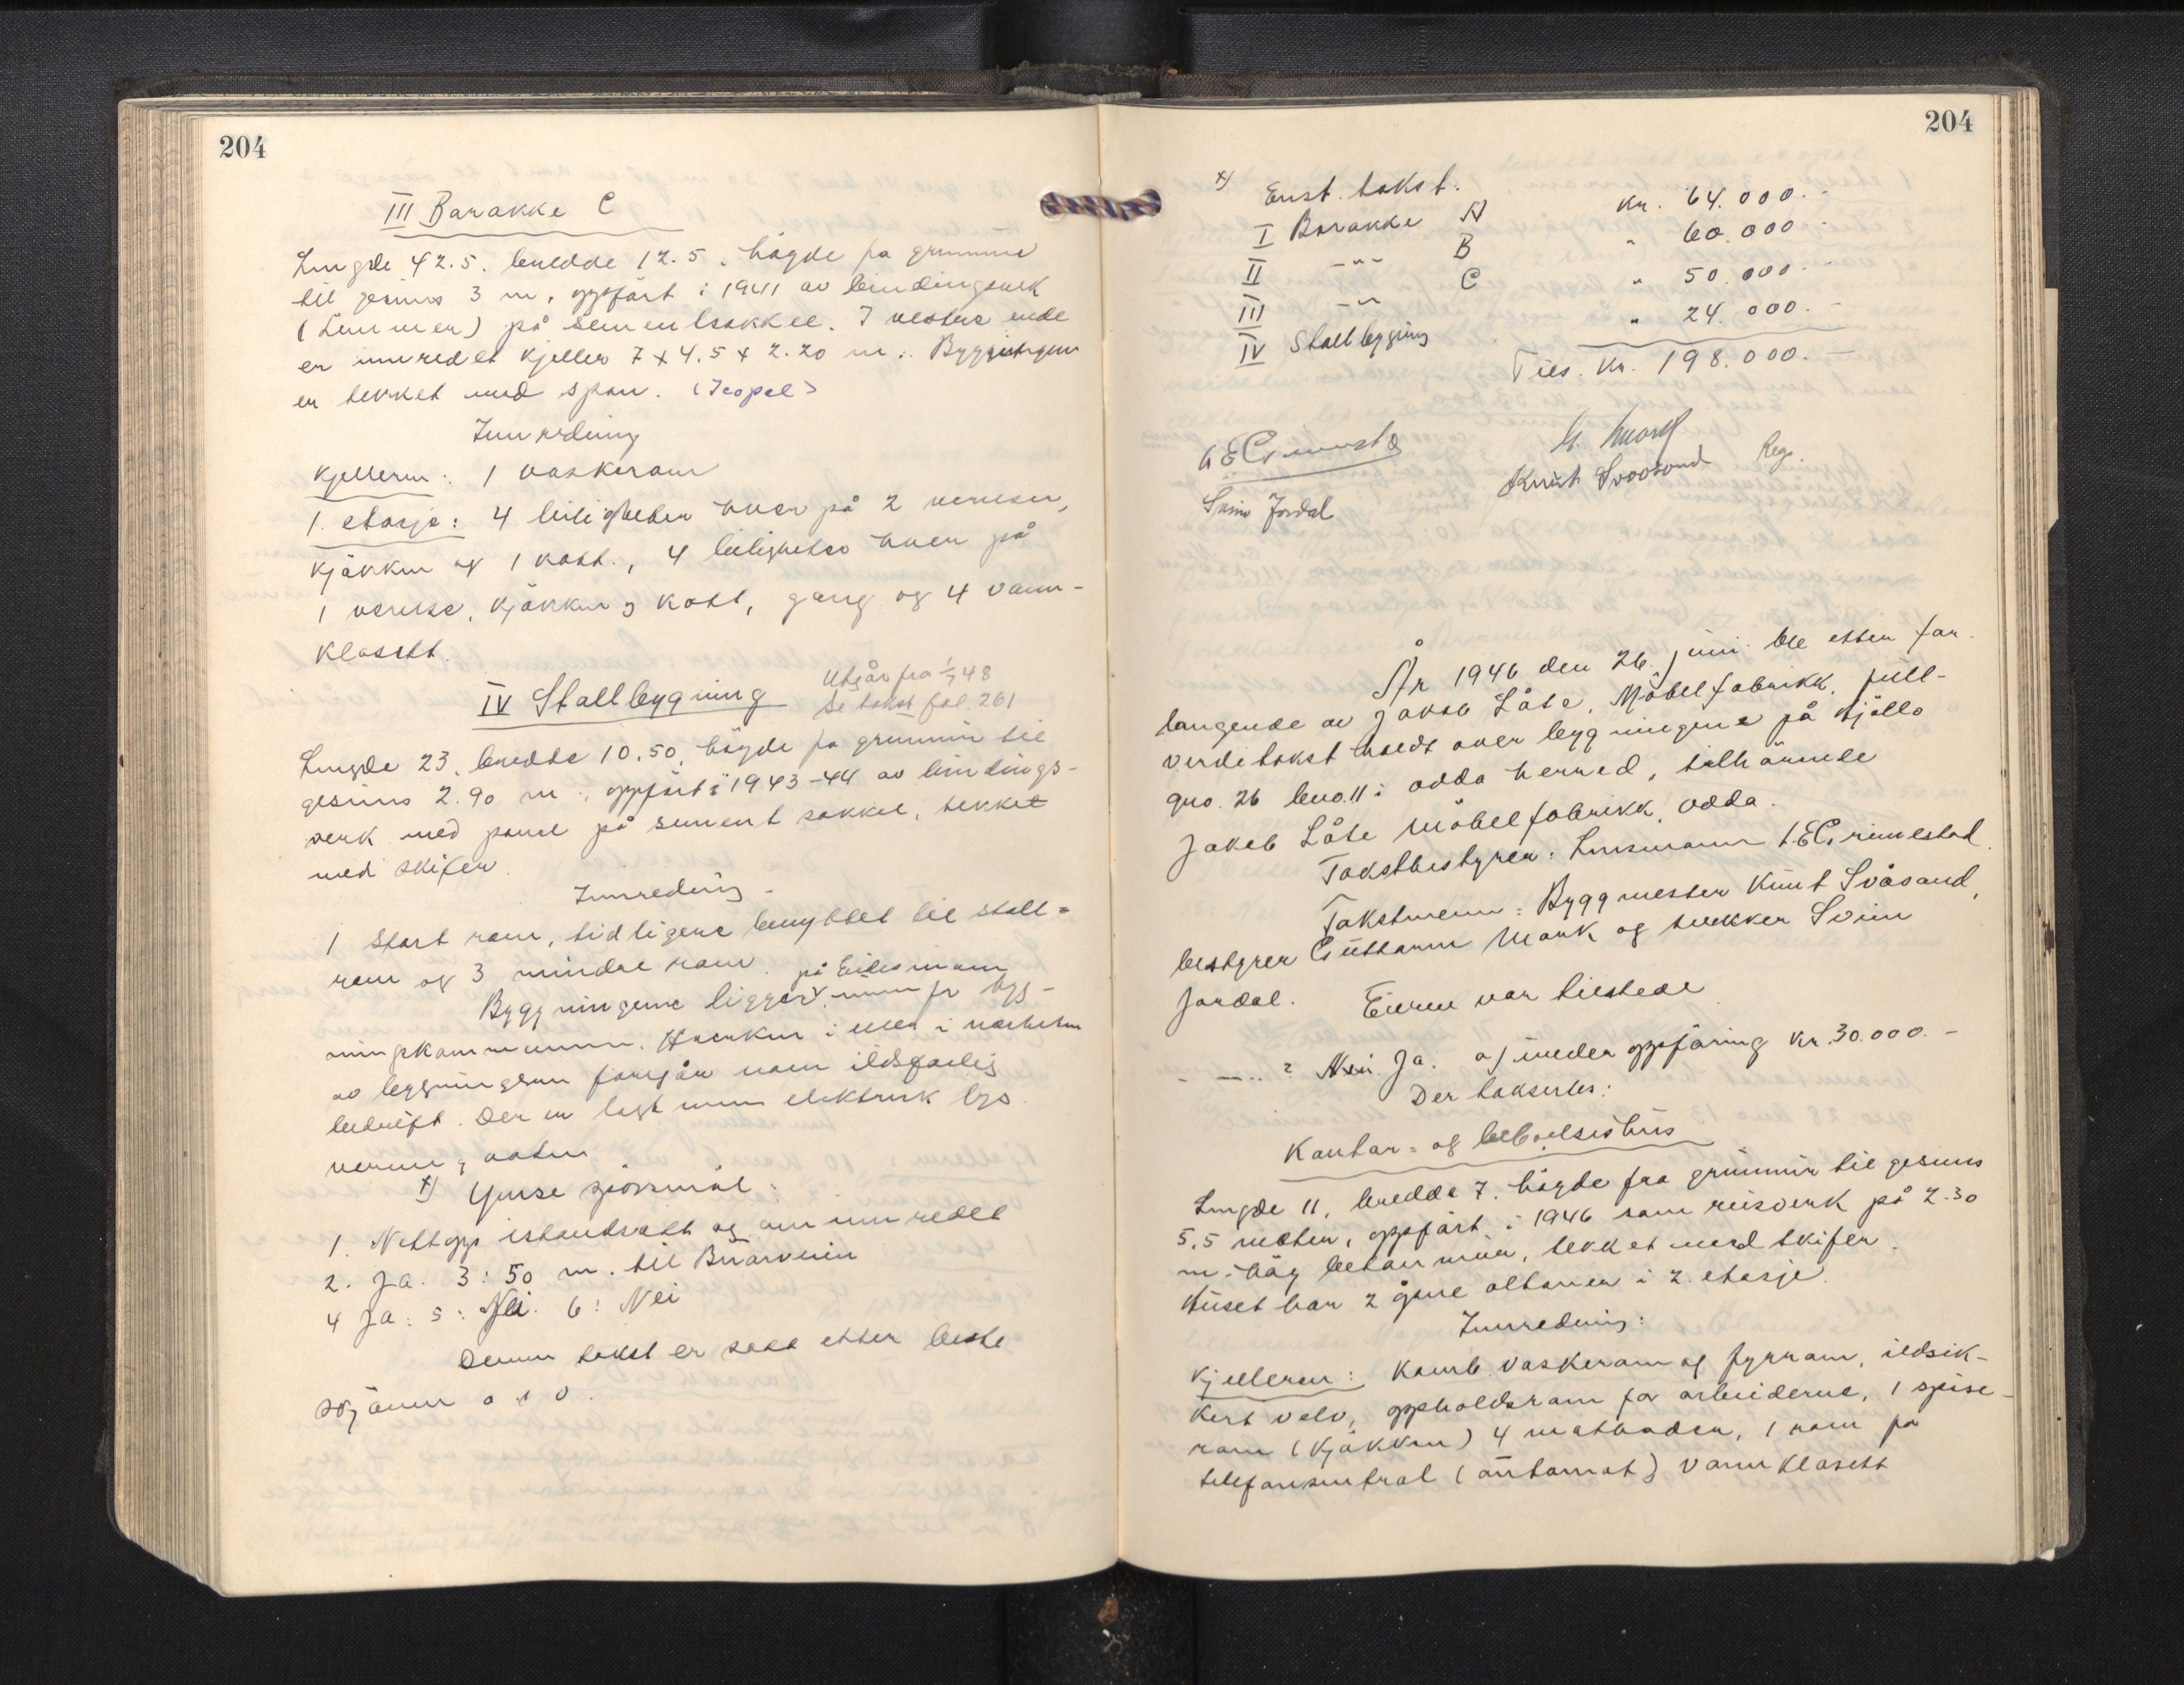 204
III Barakke C
Lengde 42.5. bredde 12.5. högde fra grunnmur
til gesims 3 m, oppfört i 1941 av bindingsverk
(Lemmer) på sementsokkel. I vestre ende
er innredet kjeller 7 x 4.5 x 2.20 m. Bygningen
er tekket med spon. (Icopal)
Innredning
Kjelleren: 1 vaskerom
1. etasje: 4 leiligheter hver på 2 værelser,
kjökken og 1 kott., 4 leiligheter hver på
1 værelse, kjökken og kott, gang og 4 vann-
klosett.
IV Stallbygning
Utgår fra 1/7 48
Se takst fol. 261
Lengde 23, bredde 10.50, högde fra grunnmur til
gesims 2.90 m., oppfört i 1943-44 av bindings-
verk med panel på sement sokkel, tekket
med skifer
Innredning -
1 Stort rom, tidligere benyttet til stall =
rom og 3 mindre rom.
Byggningene ligger på Eidesmoen innen for byg-
ningskommunen. Hverken i eller i nærheten
av bygningene foregår noen ildsfarlig
bedrift. Der er lagt inn elektrisk lys
varme og vatn
x) Ymse spörsmål:
1. Nettopp istandsatt og ominnredet
2. Ja. 3: 50 m. til
4 Ja: 5: Nei. 6: Nei
Denne takst er satt etter beste
skjönn o s v.
204
x) Enst. takst.
I Barakke A kr. 64.000.-
II -"- B " 60.000.-
III -"- C " 50.000.-
IV Stallbygging " 24.000.-
Tils. Kr. 198.000.-
G. Mork
Knut Svåsand Rege.
Svein Jordal
År 1946 den 26. juni ble etter for-
langende av Jakob Låte, Möbelfabrikk, full-
verditakst holdt over bygningene på Hjöllo
gno. 26 bno. 11 i Odda herred, tilhörende
Jakob Låte Möbelfabrikk, Odda.
Takstbestyrer: Lensmann L.E. Grimestad.
Takstmenn: Byggmester Knut Svåsand,
bestyrer Guttorm Mork og snekker Svein
Jordal.
Eieren var tilstede
- -.. ? Nei. Ja. a) under oppföring kr. 30.000.-
Der takseres:
Kontor = og beboelseshus
Lengde 11, bredde 7. högde fra grunnmur til gesims
5.5 meter, oppfört i 1946 som reisverk på 2.30
m. höy betonmur, tekket med skifer.
Huset har 2 åpne altaner i 2. etasje.
Innredning:
Kjelleren: Komb. vaskerom og fyrrom, ildsik-
kert velv, oppholdsrom for arbeiderne, 1 spise-
rom (kjökken) 4 matboder, 1 rom for
telefonsentral (automat) vannklosett